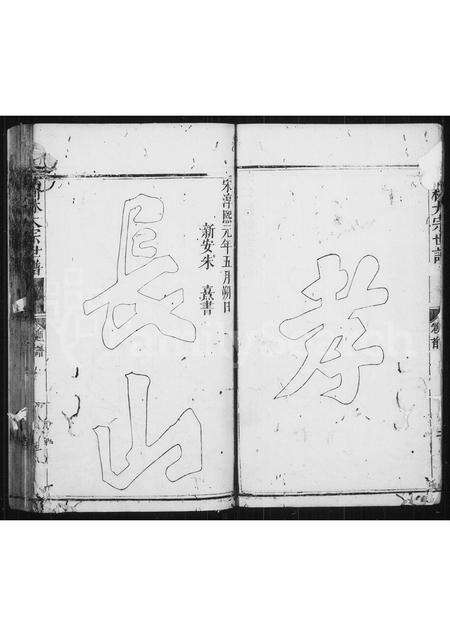 大宗世譜
卷首
孝
宋淳熙元年五月朔日
新安朱熹書
長山
宗世譜